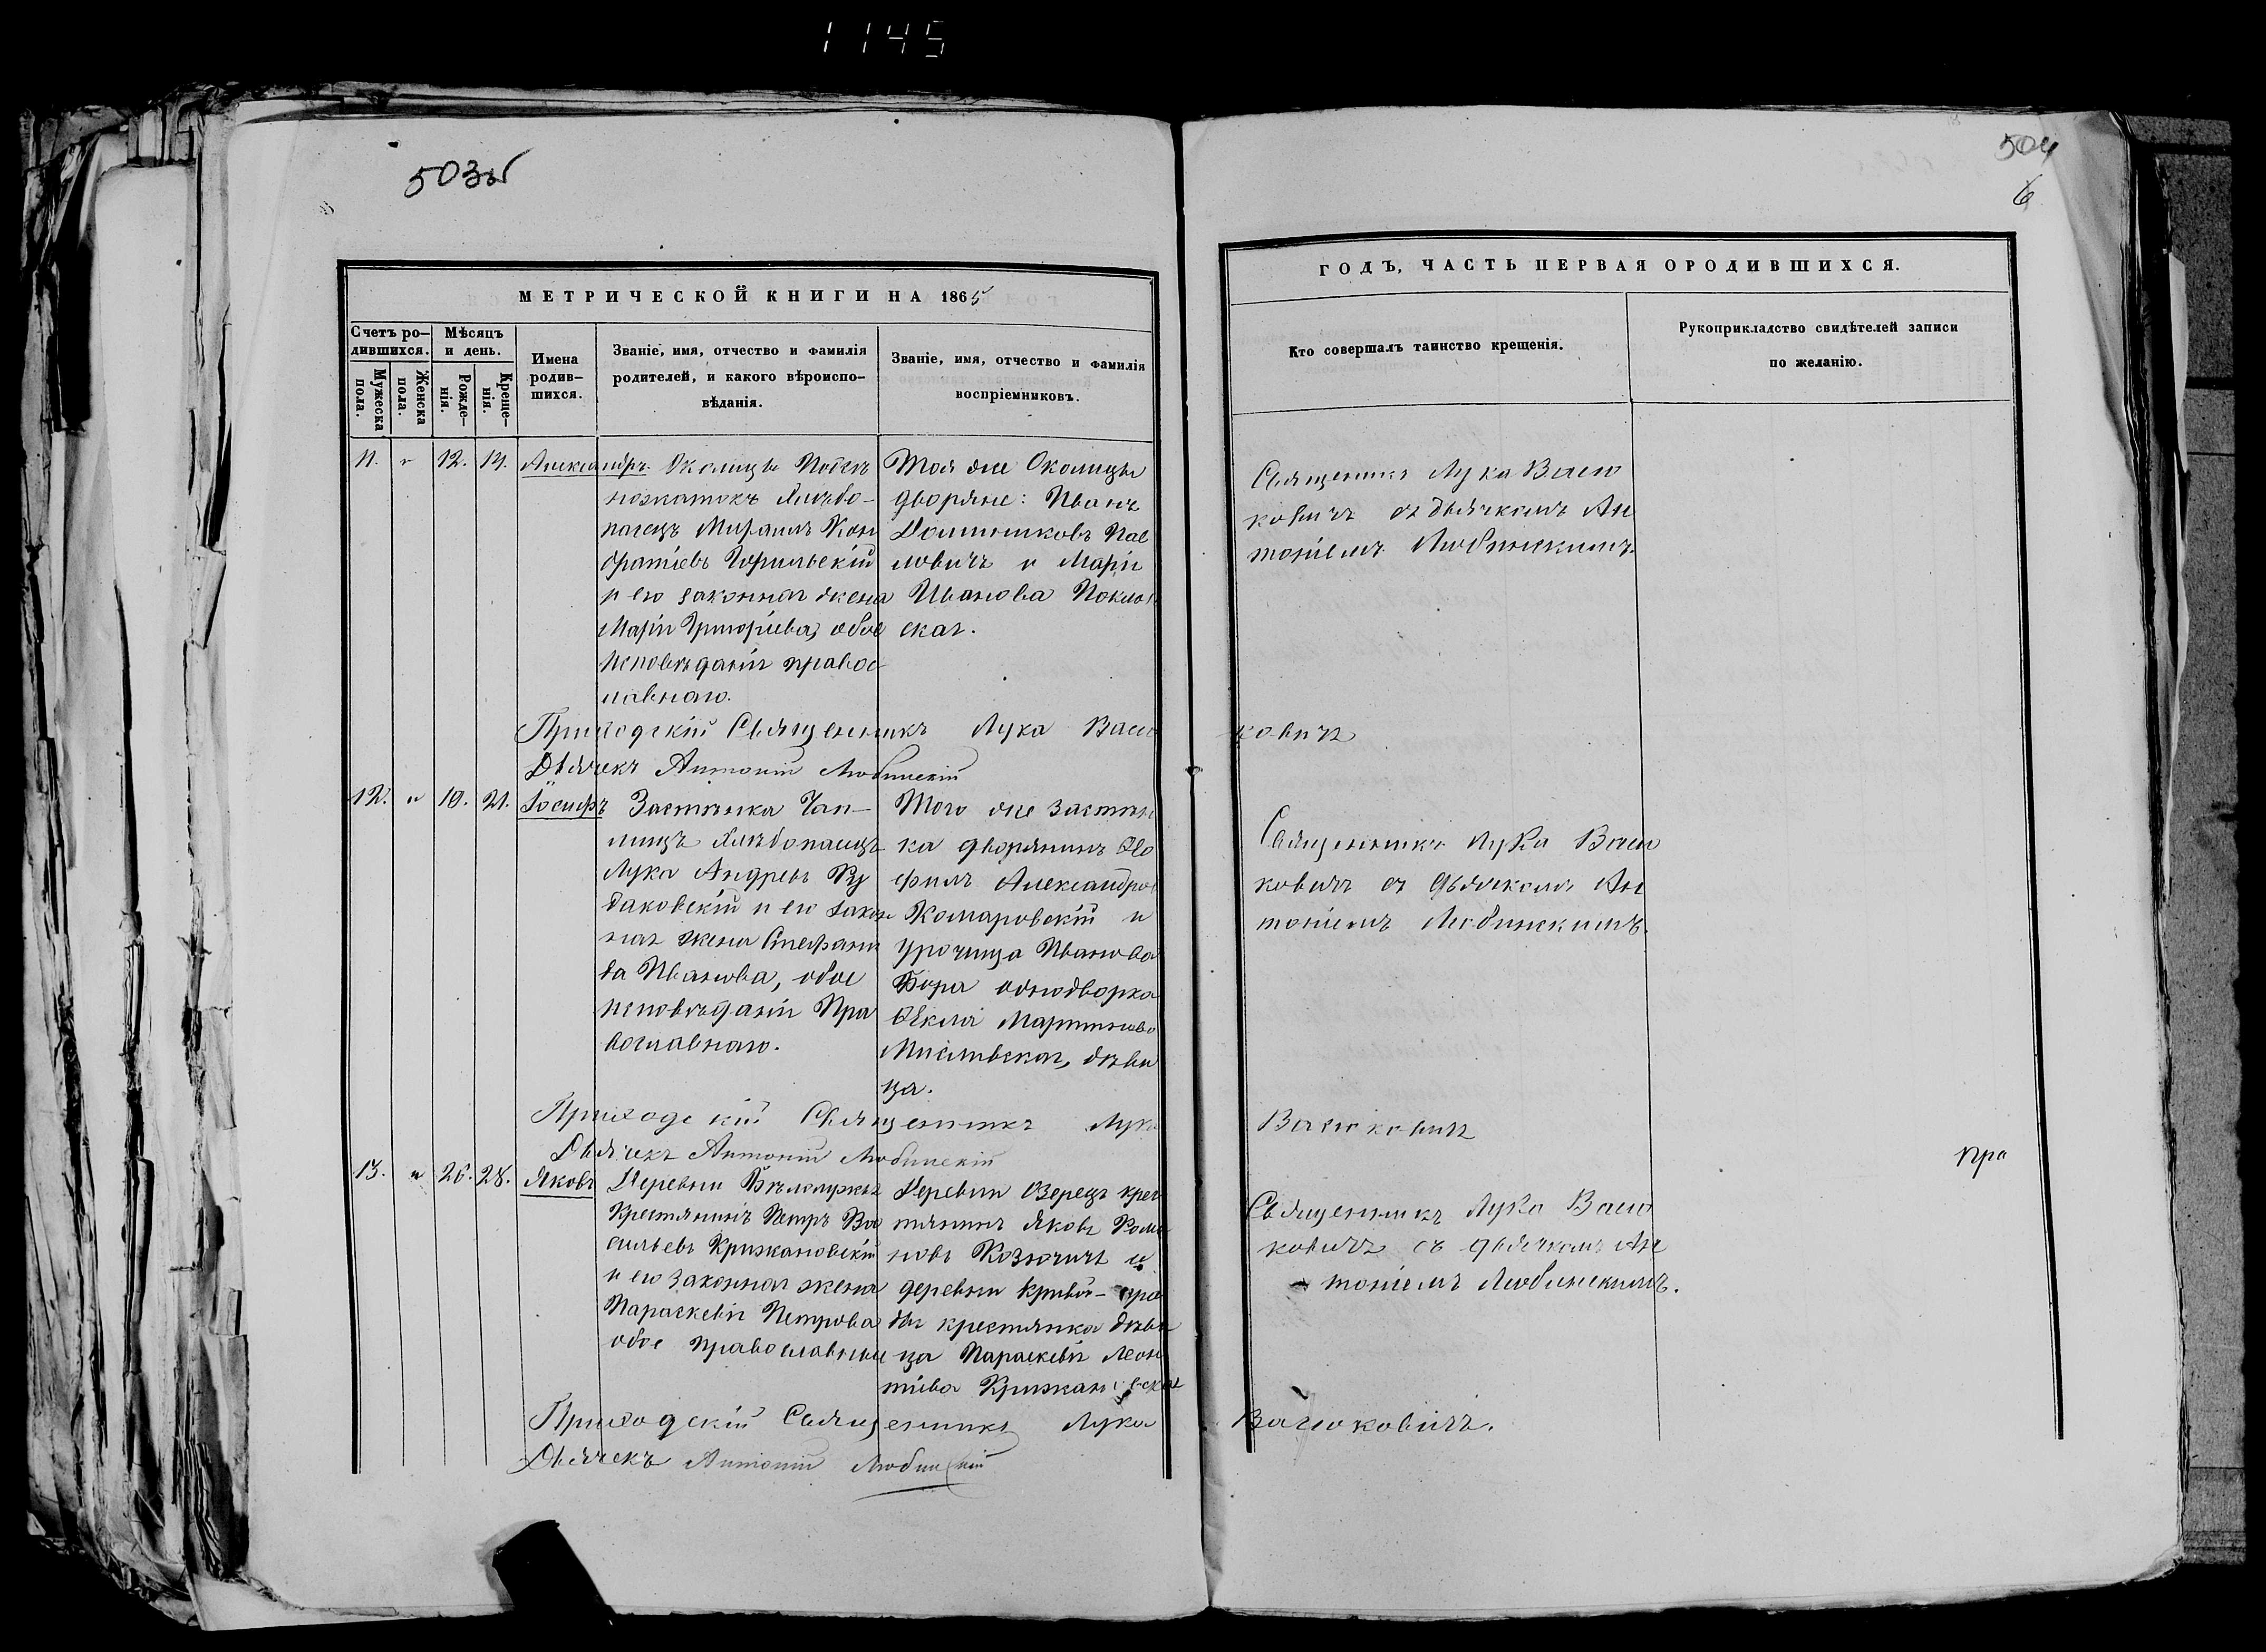 1145
503об
504
6
МЕТРИЧЕСКОЙ КНИГИ НА 1865
ГОДЪ, ЧАСТЬ ПЕРВАЯ О РОДИВШИХСЯ.
Счетъ ро-
дившихся.
Мужеска
пола.
Женска
пола.
Мѣсяцъ
и день.
Рожде-
нія.
Креще-
нія.
Имена
родив-
шихся.
Званіе, имя, отчество и фамилія
родителей, и какого вѣроиспо-
вѣданія.
Званіе, имя, отчество и фамилія
воспріемниковъ.
Кто совершалъ таинство крещенія.
Рукоприкладство свидѣтелей записи
по желанію.
11. " 12. 14. Александръ.
Околицы
хлѣбо-
пашецъ Михаилъ Кон
дратіевъ
и его законная жена
Марія Григоріева, обое
исповѣданія правос
лавнаго.
Той же Околицы
дворяне: Иванъ
Доминиковъ Пав
ловичъ и Марія
Иванова
ская.
Священникъ Лука Васю
ковичъ съ дьячкомъ Ан
тоніемъ Любинскимъ.
Приходскій Священникъ Лука Васю
ковичъ
Дьячекъ Антоній Любинскій
12. " 10. 21. Іосифъ
Застѣнка Чап-
лицъ хлѣбопашецъ
Лука Андреевъ Ру
даковскій и его закон
ная жена Стефани
да Иванова, обое
исповѣданія Пра
вославнаго.
Того же застѣн
ка дворянинъ Ѳео
филъ Александровъ
Комаровскій и
урочища Иванова
Бора однодворка
Ѳекла Мартинова
дѣви
ца.
Священникъ Лука Васю
ковичъ съ дьячкомъ Ан
тоніемъ Любинскимъ.
Приходскій Священникъ Лука
Васюковичъ
Дьячекъ Антоній Любинскій
13. " 26. 28. Яковъ
Деревни
Крестянинъ Петръ Ва
сильевъ Крижановскій
и его законная жена
Параскевія Петрова
обое православные
Деревни Озерецъ крес
тянинъ Яковъ Рома
новъ Козючицъ и
деревни
крестянка дѣви
ца Параскевія Леон
тіева Крижановская
Священникъ Лука Васю
ковичъ съ дьячкомъ Ан
тоніемъ Любинскимъ.
пра
Приходскій Священникъ Лука
Васюковичъ.
Дьячекъ Антоній Любинскій